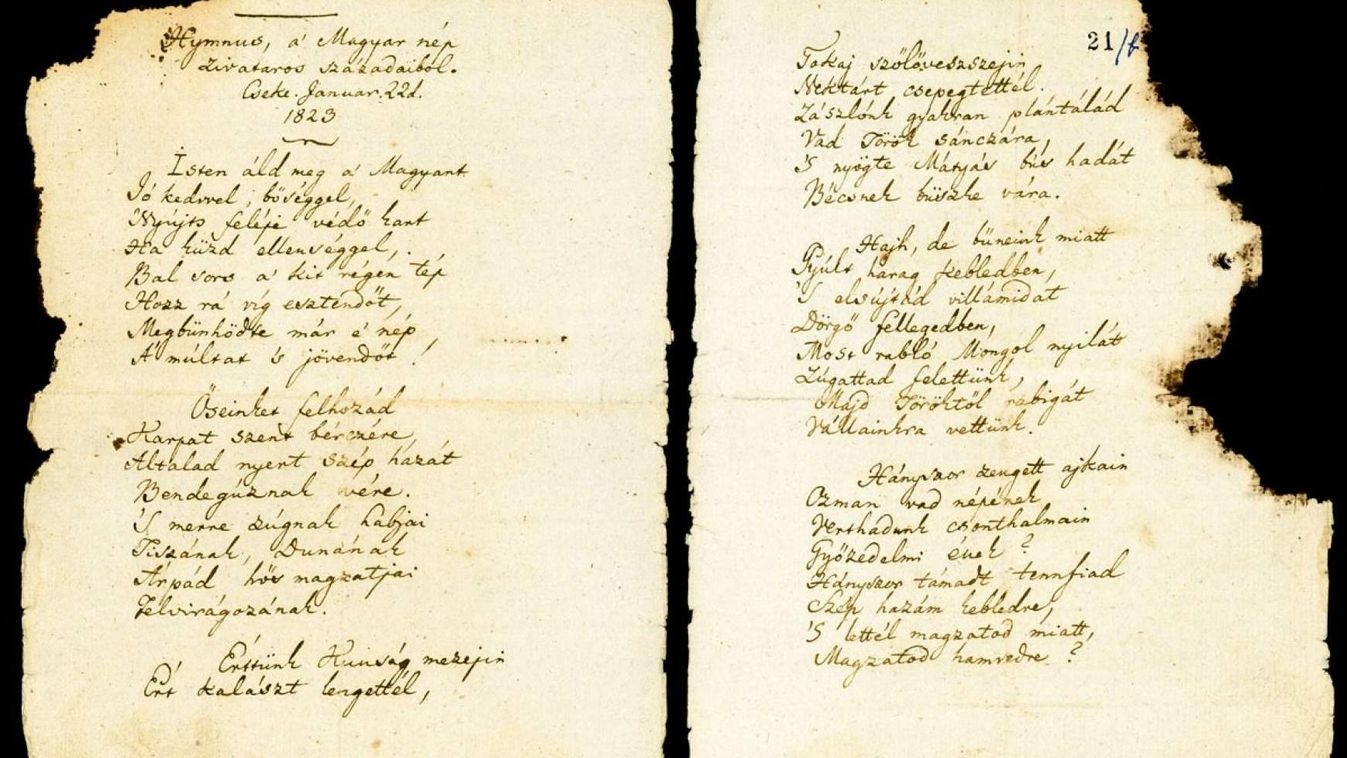 Hymnus, a' Magyar nép
zivataros századaiból.
Cseke. Januar. 22d.
1823
Isten áld meg a' Magyart
Jó kedvvel, bőséggel,
Nyújts feléje védő kart
Ha küzd ellenséggel,
Bal sors a' kit régen tép
Hozz rá víg esztendőt,
Megbűnhődte már e' nép
A' múltat 's jövendőt!
Őseinket felhozád
Kárpát szent bérczére,
Általad nyert szép hazát
Bendegúznak vére.
'S merre zúgnak habjai
Tiszának, Dunának
Árpád hős magzatjai
Felvirágozának.
Értünk Kunság mezején
Ért kalászt lengettél,
21/b
Tokaj szőlővesszejin
Nektárt csepegtettél.
Zászlónk gyakran plántálád
Vad Török sánczára,
'S nyögte Mátyás bús hadát
Bécsnek büszke vára.
Hajh, de bűneink miatt
Gyúlt harag kebledben,
'S elsújtád villámidat
Dörgő fellegedben,
Most rabló Mongol nyilát
Zúgattad felettünk,
Majd Töröktől rabigát
Vállainkra vettünk.
Hányszor zengett ajkain
Ozman vad népének
Vert hadunk csonthalmain
Győzedelmi ének?
Hányszor támadt tennfiad
Szép hazám kebledre,
'S lettél magzatod miatt,
Magzatod hamvedre?